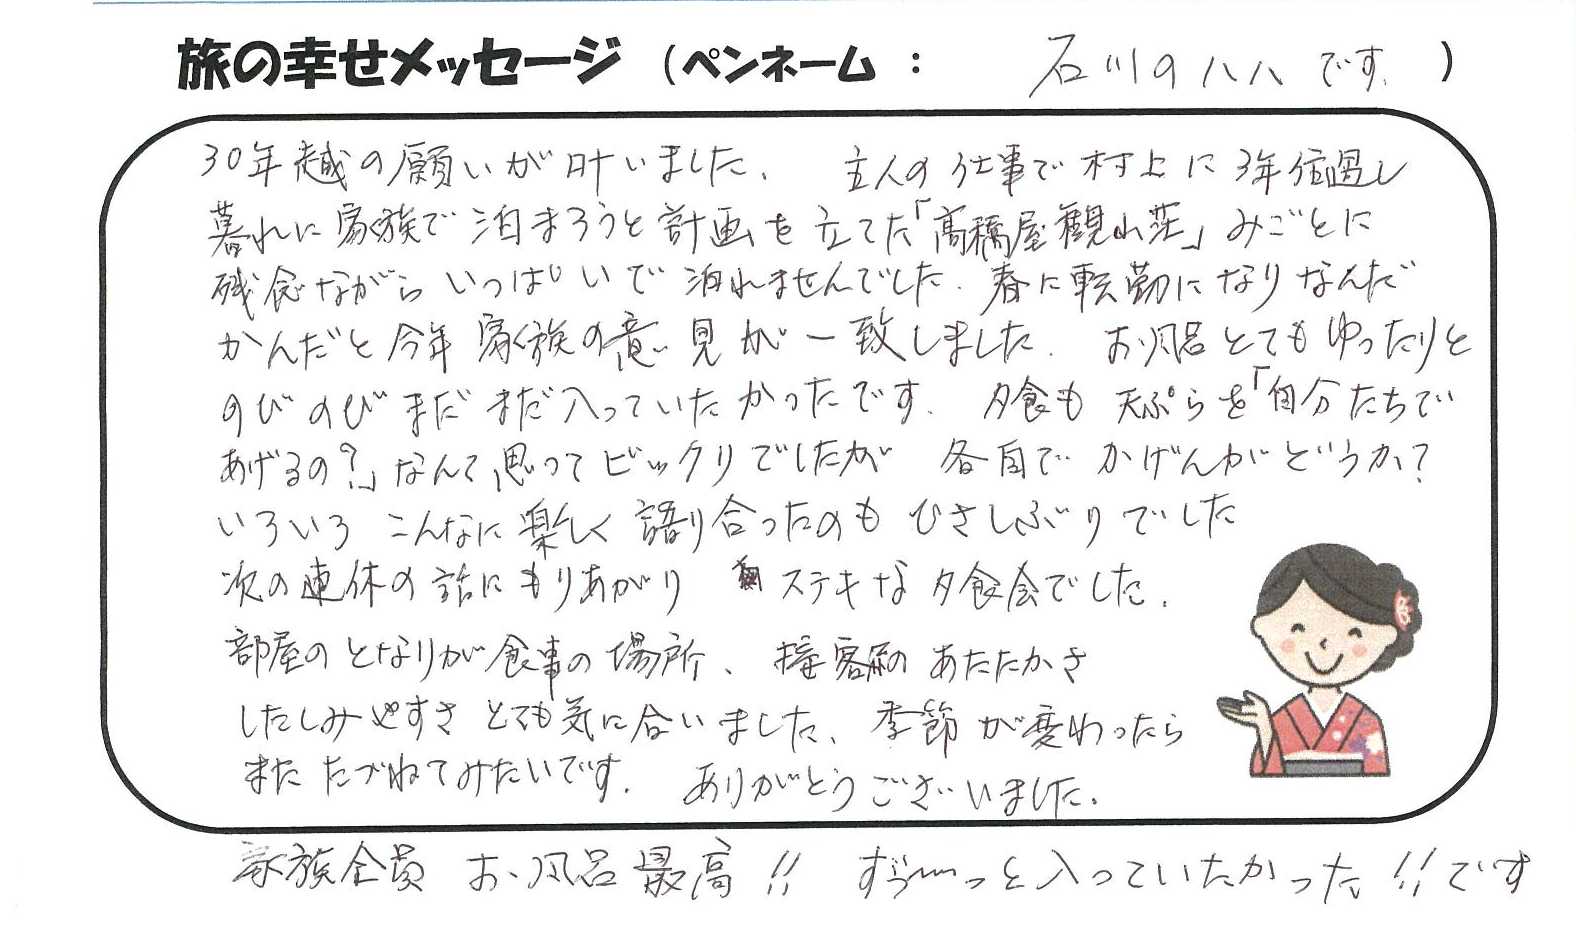 旅の幸せメッセージ (ペンネーム : 石川のハハです. )
30年越の願いが叶いました. 主人の仕事で村上に3年住過し
暮れに家族で泊まろうと計画を立てた「髙橋屋観山荘」みごとに
残念ながらいっぱいで泊れませんでした. 春に転勤になりなんだ
かんだと今年家族の意見が一致しました. お風呂とてもゆったりと
のびのびまだまだ入っていたかったです. 夕食も天ぷらを「自分たちで
あげるの?」なんて思ってビックリでしたが各自でかげんがどうか?
いろいろこんなに楽しく語り合ったのもひさしぶりでした
次の連休の話にもりあがりステキな夕食会でした.
部屋のとなりが食事の場所、接客のあたたかさ
したしみやすさとても気に合いました、季節が変わったら
またたづねてみたいです. ありがとうございました.
家族全員お風呂最高!! ずぅ〜っと入っていたかった!!です